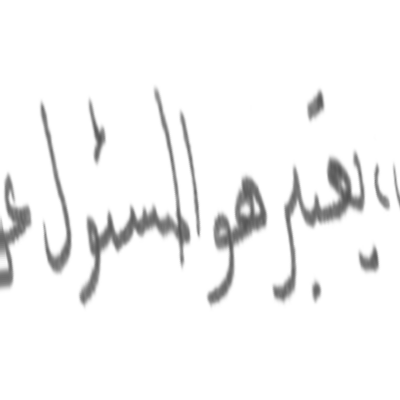 يعتبر هو المسئول